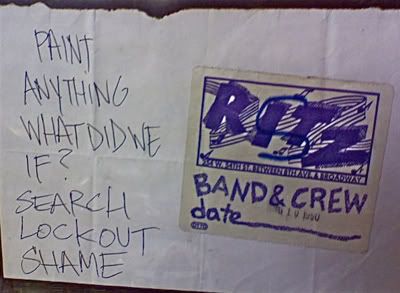 PAINT
ANYTHING
WHAT DID WE
IF?
SEARCH
LOCKOUT
SHAME
RITZ
254 W. 54TH ST. BETWEEN 8TH AVE. & BROADWAY
BAND & CREW
date